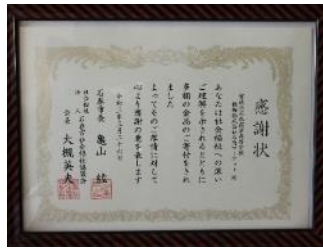 感謝状
あなたは社会福祉への深い
ご理解を示されるとともに
多額の金品のご寄付をされ
ました
よってそのご厚情に対して
心より感謝の意を表します
石巻市長 亀山 紘
社会福祉法人 石巻市社会福祉協議会
会長 大槻英夫